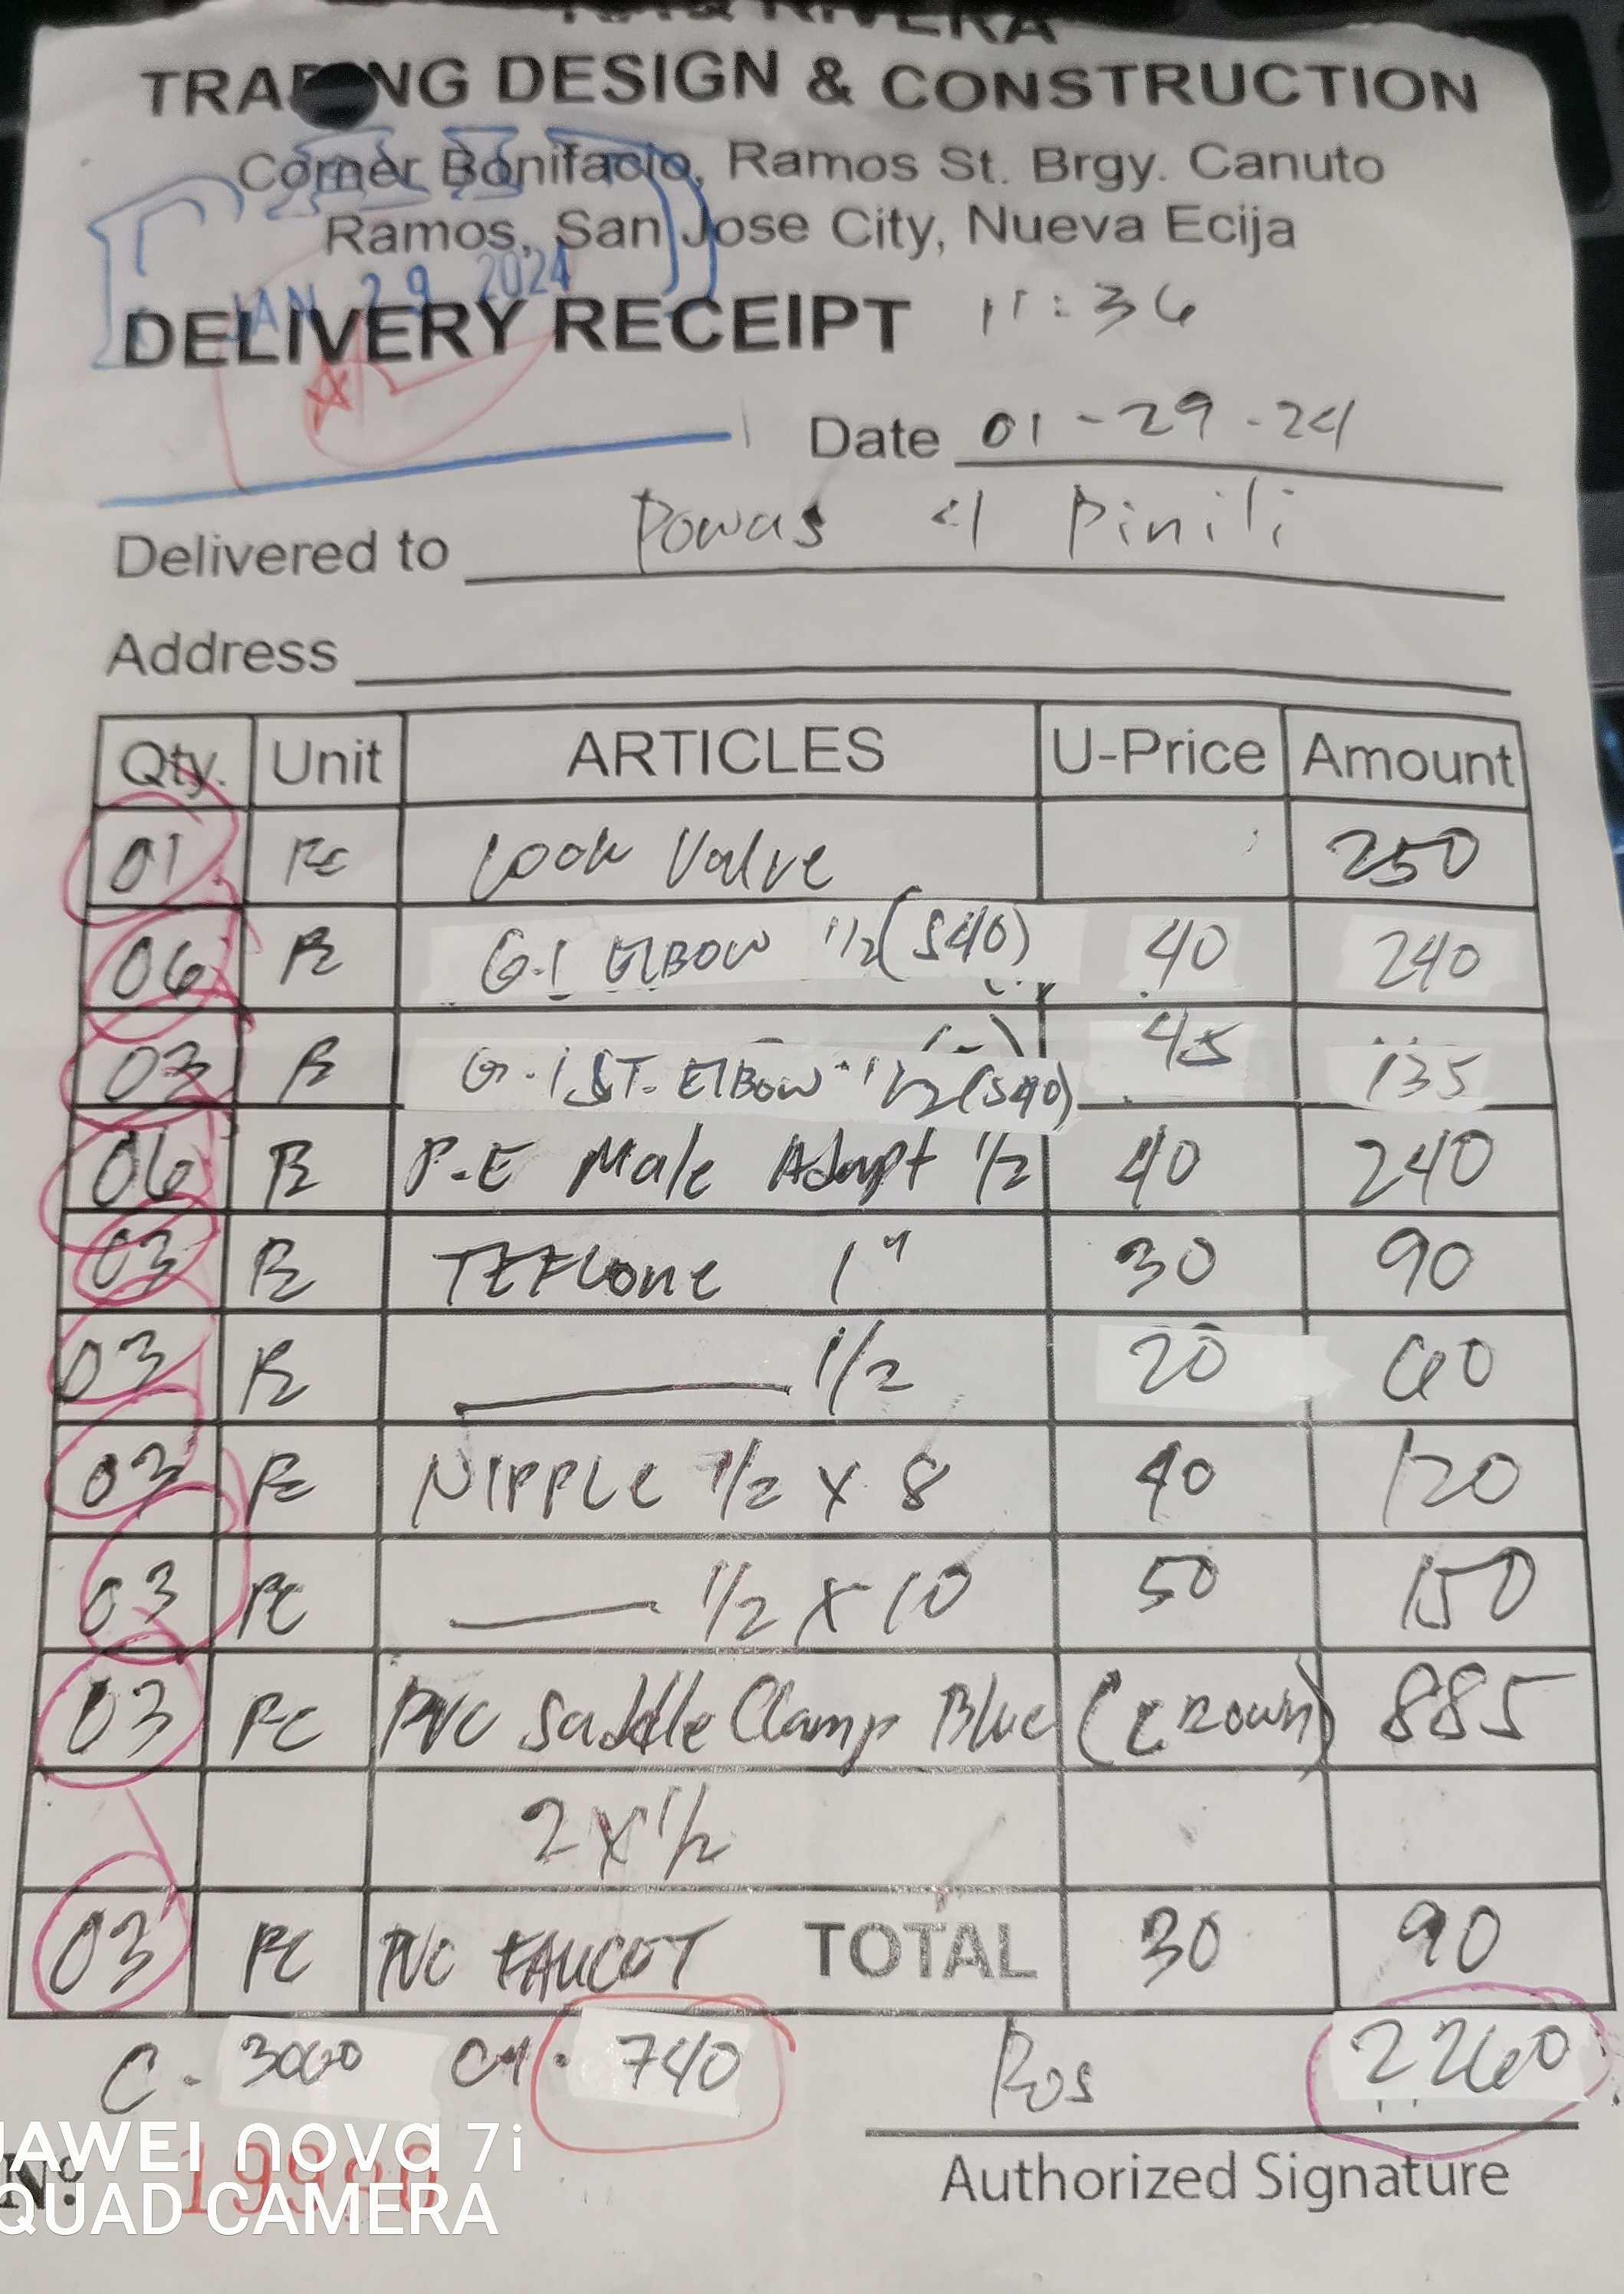 RIVERA
TRADING DESIGN & CONSTRUCTION
Corner Bonifacio, Ramos St. Brgy. Canuto
Ramos, San Jose City, Nueva Ecija
JAN 29 2024
DELIVERY RECEIPT 11:36
Date 01-29-24
Delivered to Powas 41 Pinili
Address
Qty. Unit ARTICLES U-Price Amount
01 PC Lock Valve 250
06 PC G.I ElBOW 1/2 (S40) 40 240
03 PC G.I ST. ElBOW 1/2 (S40) 45 135
06 PC P.E Male Adapt 1/2 40 240
03 PC TEFLone 1" 30 90
03 PC 1/2 20 60
03 PC NIPPLE 1/2 x 8 40 120
03 PC 1/2 x 10 50 150
03 PC PVC Saddle Clamp Blue (CROWN) 885
2 x 1/2
03 PC PVC FAUCET TOTAL 30 90
C. 3000 CH. 740 Ros 2260
Authorized Signature
Nº
HUAWEI nova 7i
QUAD CAMERA